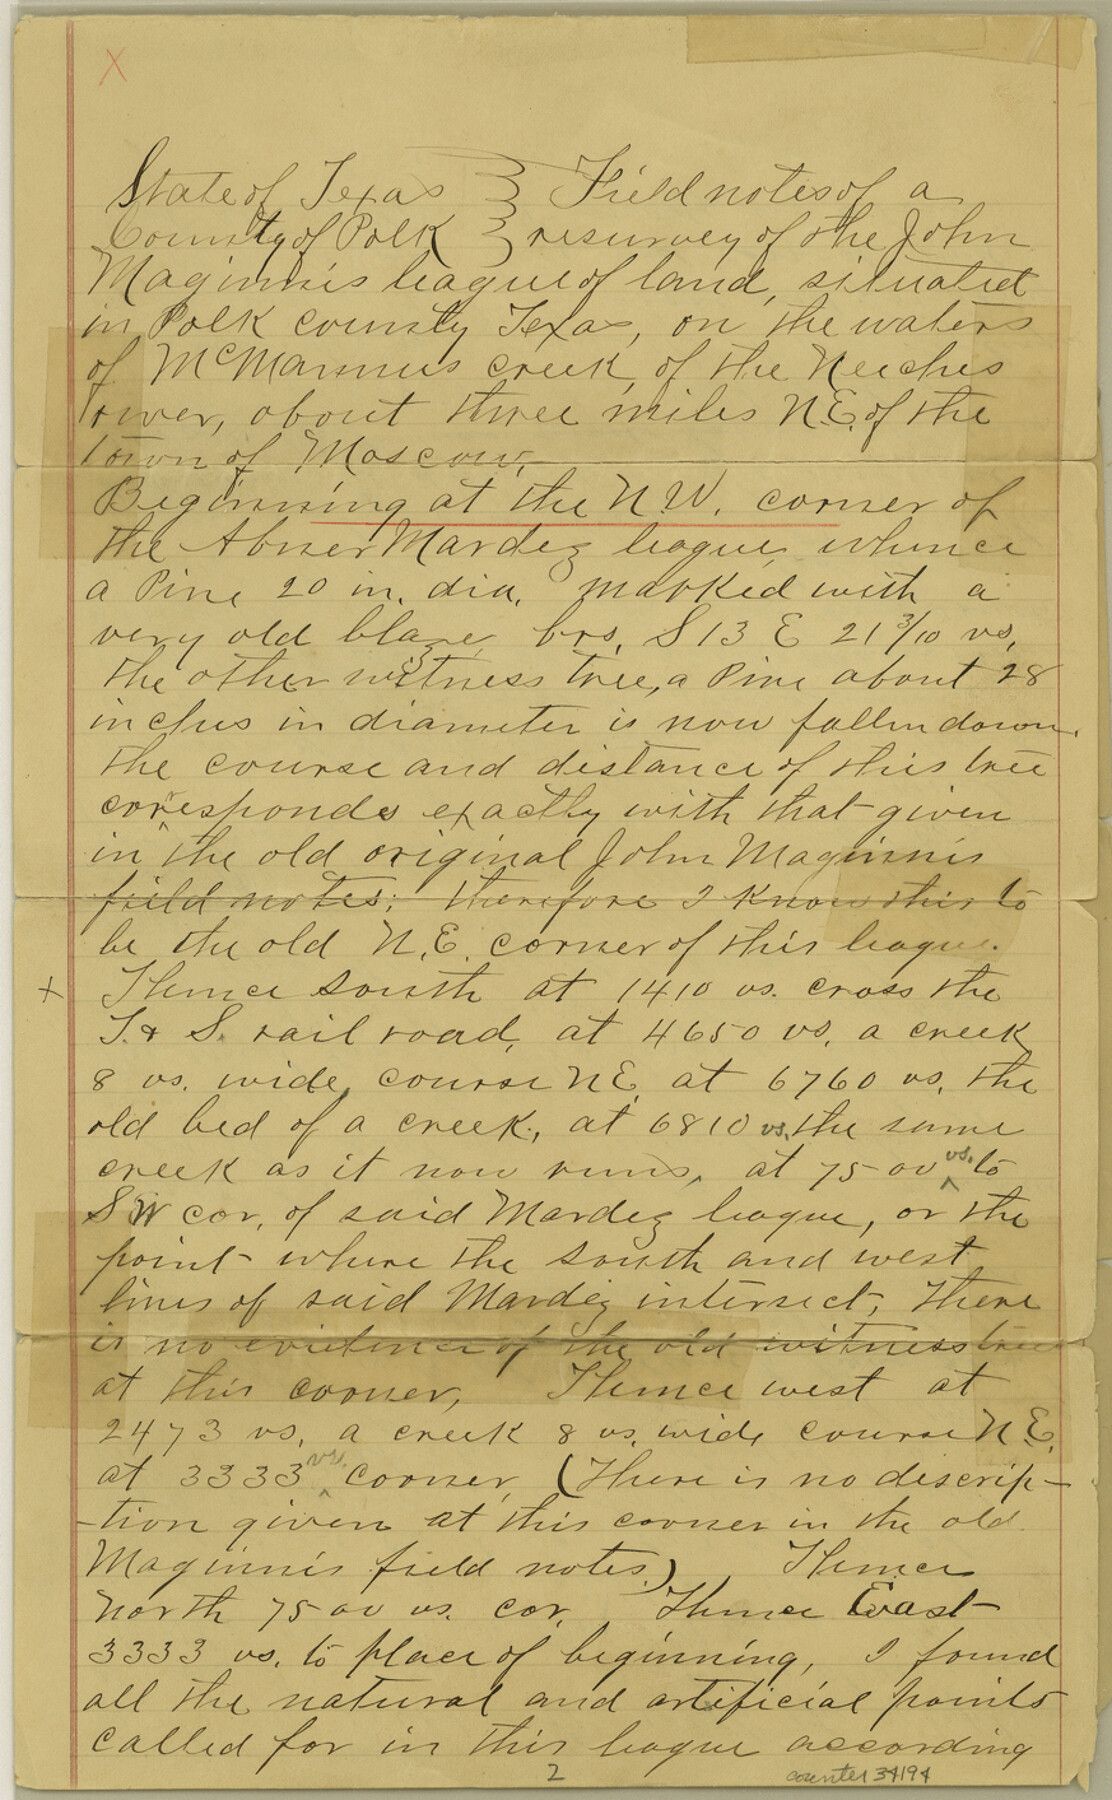 X
State of Texas } Field notes of a
County of Polk } resurvey of the John
Maginnis league of land, situated
in Polk county Texas, on the waters
of McMannus creek, of the Neches
river, about three miles N.E. of the
town of Moscow.
Beginning at the N.W. corner of
the Abner Mardez league, whence
a Pine 20 in. dia. marked with a
very old blaze, brs. S 13 E 21 3/10 vs.
the other witness tree, a Pine about 28
inches in diameter is now fallen down.
the course and distance of this tree
corresponds exactly with that given
in the old original John Maginnis
field notes; therefore I know this to
be the old N.E. corner of this league.
X Thence South at 1410 vs. cross the
T. & S. rail road, at 4650 vs. a creek
8 vs. wide, course N E, at 6760 vs. the
old bed of a creek, at 6810 vs. the same
creek as it now runs, at 7500 vs. to
S W cor. of said Mardez league, or the
point where the south and west
lines of said Mardez intersect, There
is no evidence of the old witness trees
at this corner, Thence west at
2473 vs, a creek 8 vs. wide course N E.
at 3333 vs. corner, (There is no descrip-
-tion given at this corner in the old
Maginnis field notes.) Thence
North 7500 vs. cor. Thence East
3333 vs. to place of beginning, I found
all the natural and artificial points
called for in this league according
2 counter 34194